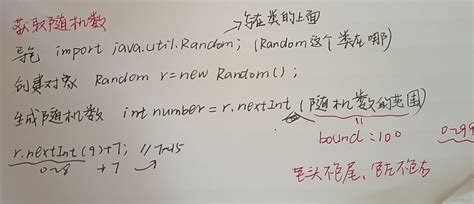 获取随机数
写在类的上面
导包 import java.util.Random; (Random这个类在哪)
创建对象 Random r=new Random();
生成随机数 int number = r.nextInt(随机数的范围)
bound:100
0~99
r.nextInt(9)+7; //7~15
0~8 +7
包头不包尾,包左不包右